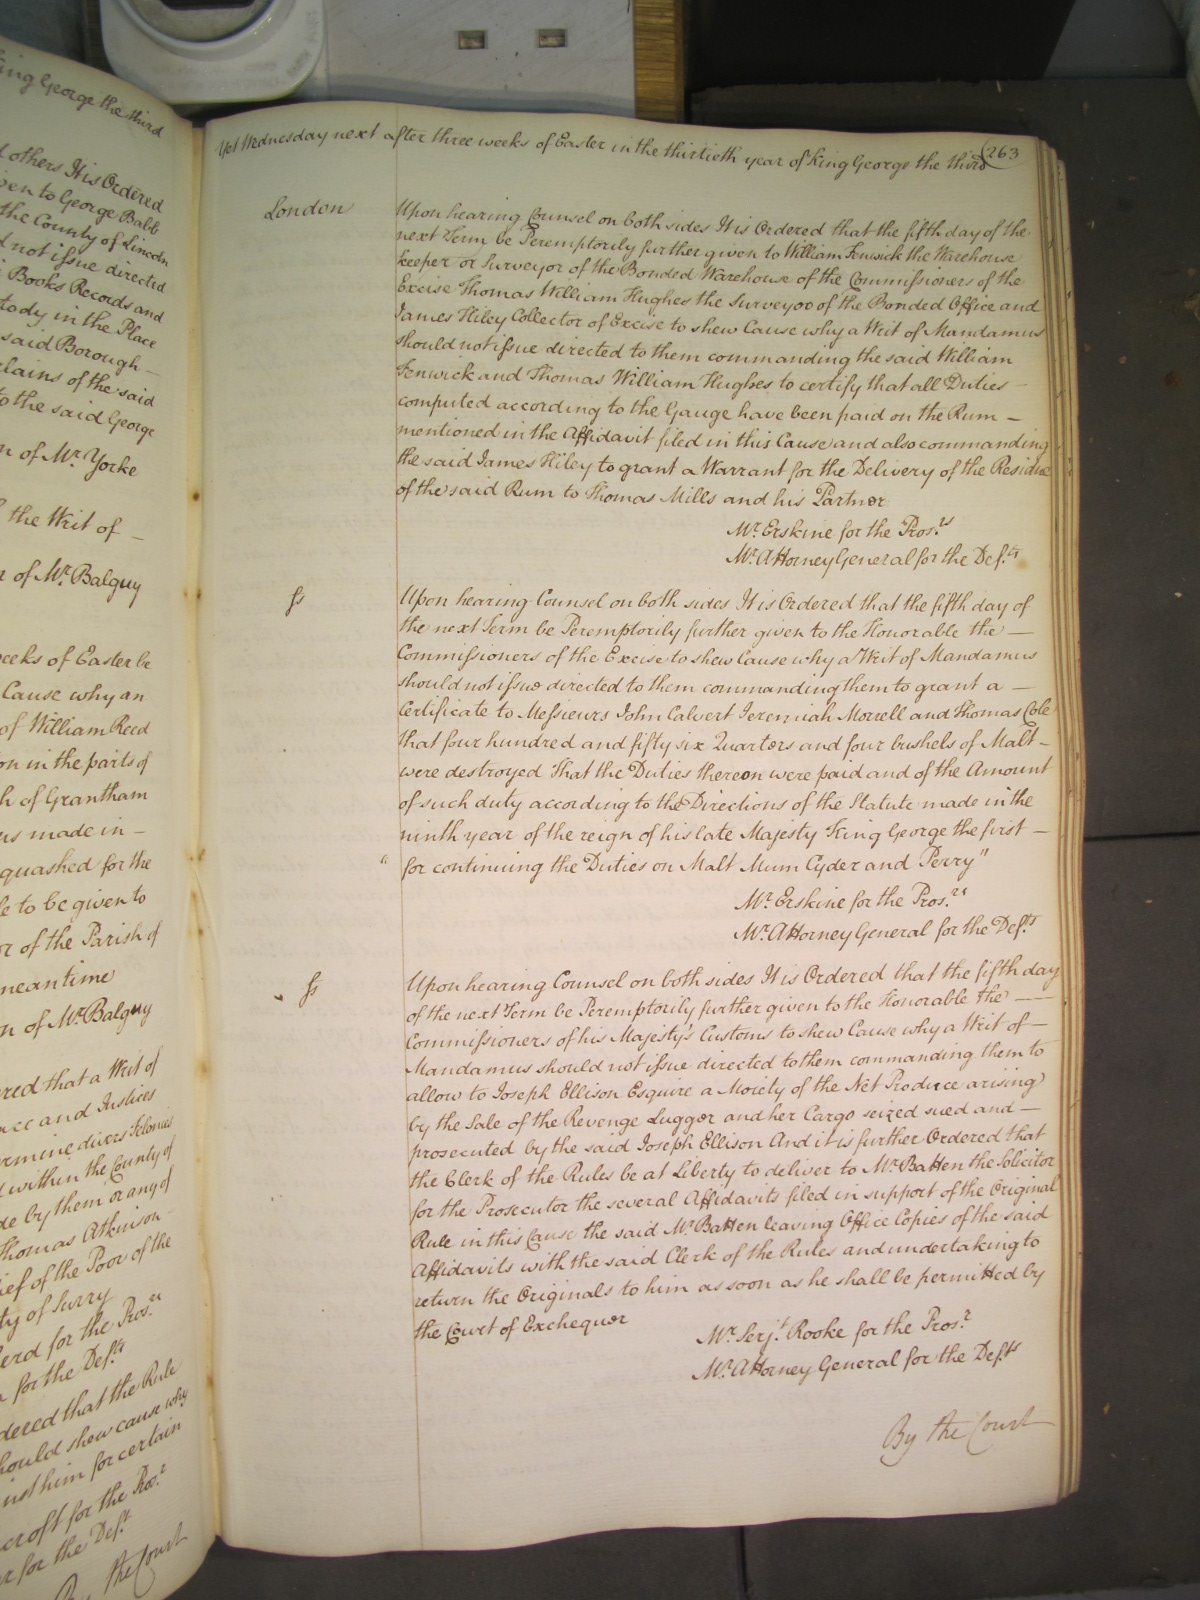 King George the third
others It is Ordered
given to George Babb
the County of Lincoln
not issue directed
Books Records and
custody in the Place
said Borough —
of the said
to the said George
of Mr. Yorke
the Writ of —
of Mr. Balguy
weeks of Easter be
Cause why an
of William Reed
in the parts of
of Grantham
made in —
quashed for the
to be given to
of the Parish of
meantime
of Mr. Balguy
Ordered that a Writ of
and Justices
determine divers Felonies
within the County of
by them or any of
Thomas Atkinson
Relief of the Poor of the
of Surry
for the Pros.rs
for the Def.ts
Ordered that the Rule
should shew cause why
against him for certain
for the Pros.r
for the Def.t
By the Court
Yet Wednesday next after three weeks of Easter in the thirtieth year of King George the third
263
London
Upon hearing Counsel on both sides It is Ordered that the fifth day of the
next Term be Peremptorily further given to William Fenwick the Warehouse
keeper or Surveyor of the Bonded Warehouse of the Commissioners of the
Excise Thomas William Hughes the Surveyor of the Bonded Office and
James Hiley Collector of Excise to shew Cause why a Writ of Mandamus
should not issue directed to them commanding the said William
Fenwick and Thomas William Hughes to certify that all Duties —
computed according to the Gauge have been paid on the Rum —
mentioned in the Affidavit filed in this Cause and also commanding
the said James Hiley to grant a Warrant for the Delivery of the Residue
of the said Rum to Thomas Mills and his Partner
Mr. Erskine for the Pros.rs
Mr. Attorney General for the Def.ts
ss
Upon hearing Counsel on both sides It is Ordered that the fifth day of
the next Term be Peremptorily further given to the Honorable the —
Commissioners of the Excise to shew Cause why a Writ of Mandamus
should not issue directed to them commanding them to grant a —
Certificate to Messieurs John Calvert Jeremiah Morrell and Thomas Cole
that four hundred and fifty six Quarters and four bushels of Malt —
were destroyed That the Duties thereon were paid and of the Amount
of such duty according to the Directions of the Statute made in the
ninth year of the reign of his late Majesty King George the first —
" for continuing the Duties on Malt Mum Cyder and Perry"
Mr. Erskine for the Pros.rs
Mr. Attorney General for the Def.ts
ss
Upon hearing Counsel on both sides It is Ordered that the fifth day
of the next Term be Peremptorily further given to the Honorable the —
Commissioners of his Majesty's Customs to shew Cause why a Writ of —
Mandamus should not issue directed to them commanding them to
allow to Joseph Ellison Esquire a Moiety of the Net Produce arising
by the Sale of the Revenge Lugger and her Cargo seized sued and —
prosecuted by the said Joseph Ellison And it is further Ordered that
the Clerk of the Rules be at Liberty to deliver to Mr. Batten the Solicitor
for the Prosecutor the several Affidavits filed in support of the Original
Rule in this Cause the said Mr. Batten leaving Office Copies of the said
Affidavits with the said Clerk of the Rules and undertaking to
return the Originals to him as soon as he shall be permitted by
the Court of Exchequer
Mr. Serj.t Rooke for the Pros.r
Mr. Attorney General for the Def.ts
By the Court